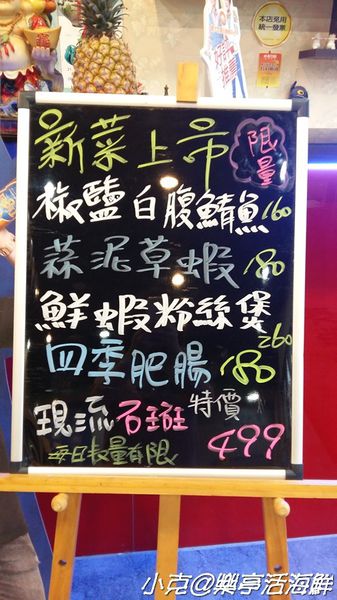 本店免用
統一發票
新菜上市 限量
椒鹽白腹鯖魚160
蒜泥草蝦180
鮮蝦粉絲煲260
四季肥腸180
現流石班特價499
每日數量有限
小克@樂享活海鮮